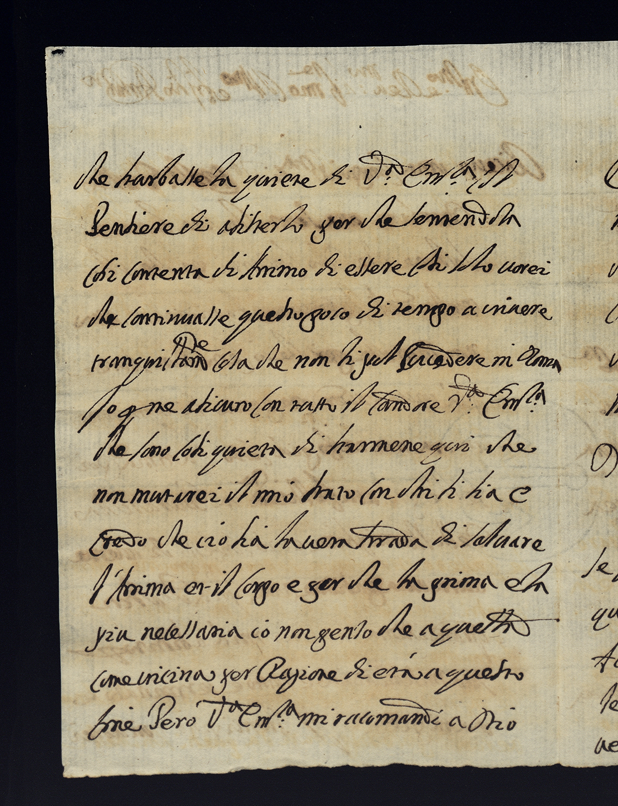 che turbasse la quiete di V.ra Em.za, il
Pensiere di assisterlo per che sentendola
così contenta di Animo di essere così solo vorei
che continuasse questo poco di tempo a vivere
tranquillam.te cosa che non si può succedere in Roma
Io ne assicuro con tutto il Candore V.ra Em.za
che sono così quieta di starmene qui che
non muterei il mio stato con chi si sia e
credo che ciò sia la vera strada di salvare
l'Anima et il Corpo e per che la prima e la
più necessaria io non penso che a questa
come vicina per Ragione di età a questo
fine Però V.ra Em.za mi racomandi a Dio